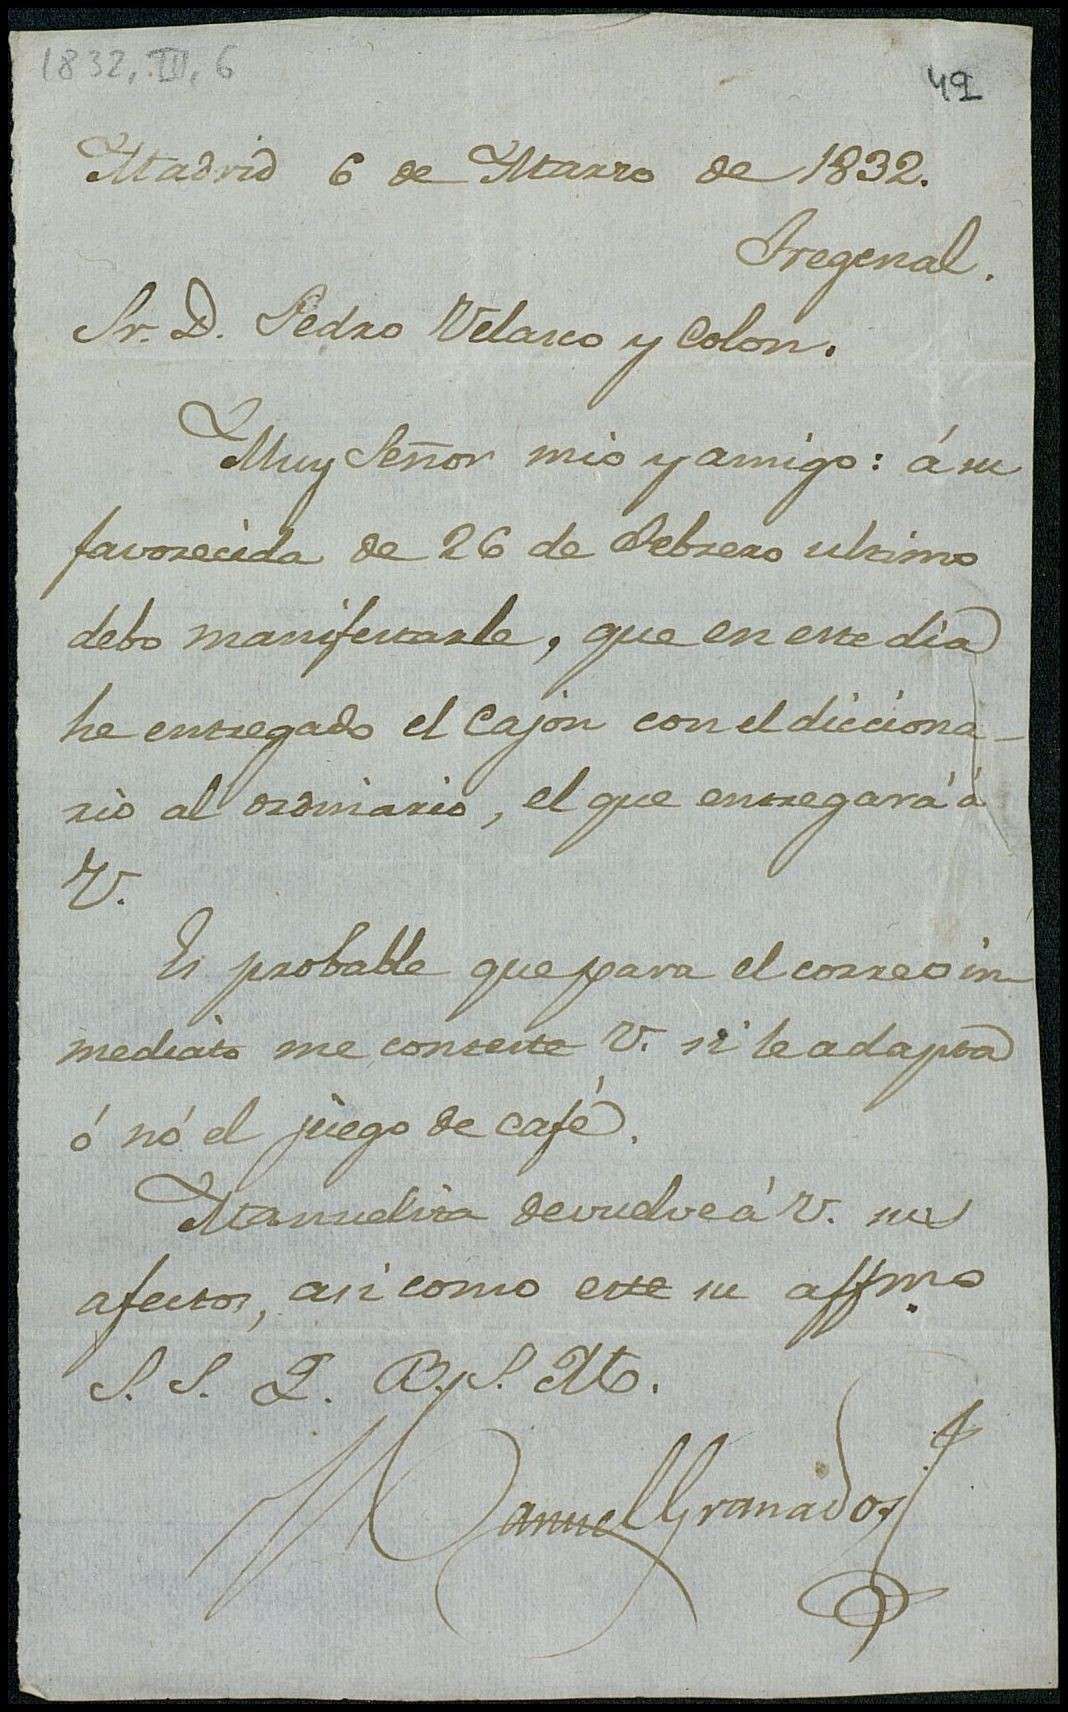 1832, III, 6
49
Madrid 6 de Marzo de 1832.
Fregenal.
Sr. D. Pedro Velasco y Colon.
Muy Señor mio y amigo: á su
favorecida de 26 de Febrero ultimo
debo manifestarle, que en este dia
he entregado el Cajon con el dicciona-
rio al ordinario, el que entregará á
V.
Es probable que para el correo in-
mediato me conteste V. si le adapta
ó nó el juego de café.
Manuelita devuelve á V. sus
afectos, asi como este su affmo
S. S. Q. B. S. M.
Manuel Granados